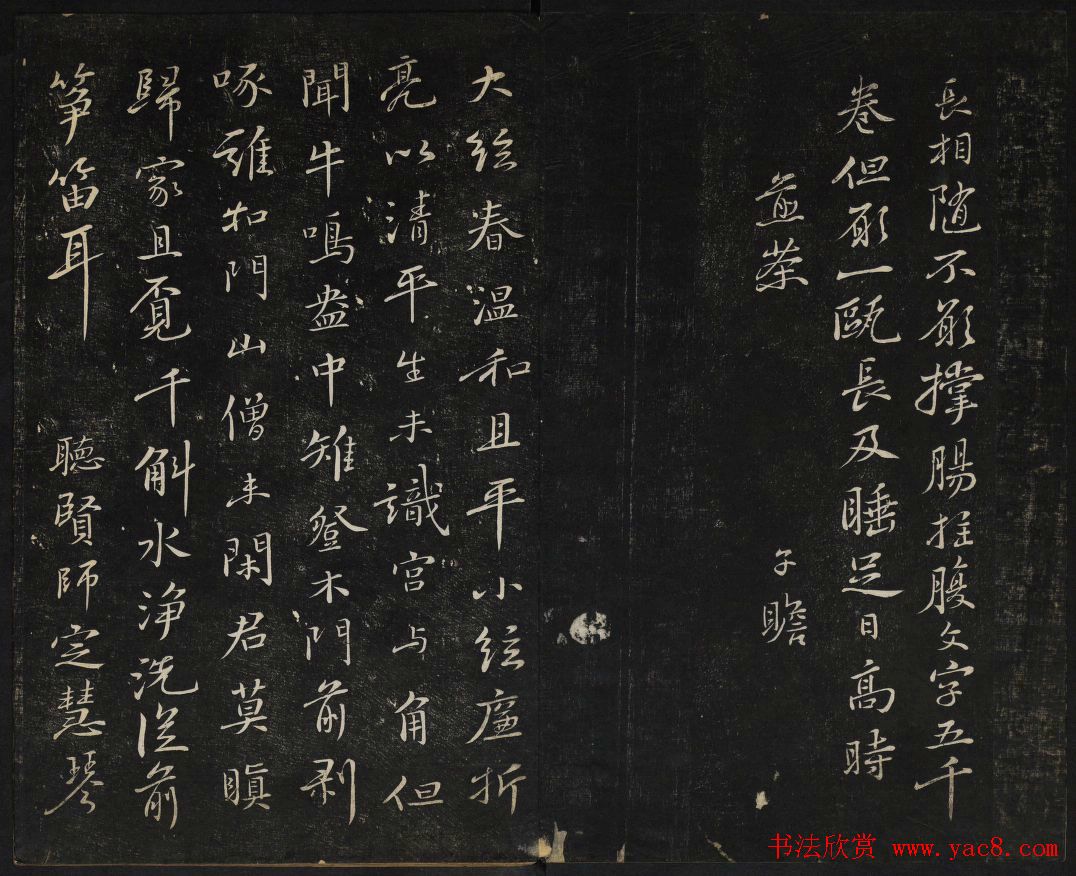 長相随不願撑腸拄腹文字五千
卷但願一甌長及睡足日高時
煎茶
子瞻
大絃春温和且平小絃廉折
亮以清平生未識宫与角但
聞牛鳴盎中雉登木門前剥
啄誰扣門山僧未閑君莫瞋
歸家且覓千斛水浄洗從前
筝笛耳 聽賢師定慧琴
书法欣赏 www.yac8.com